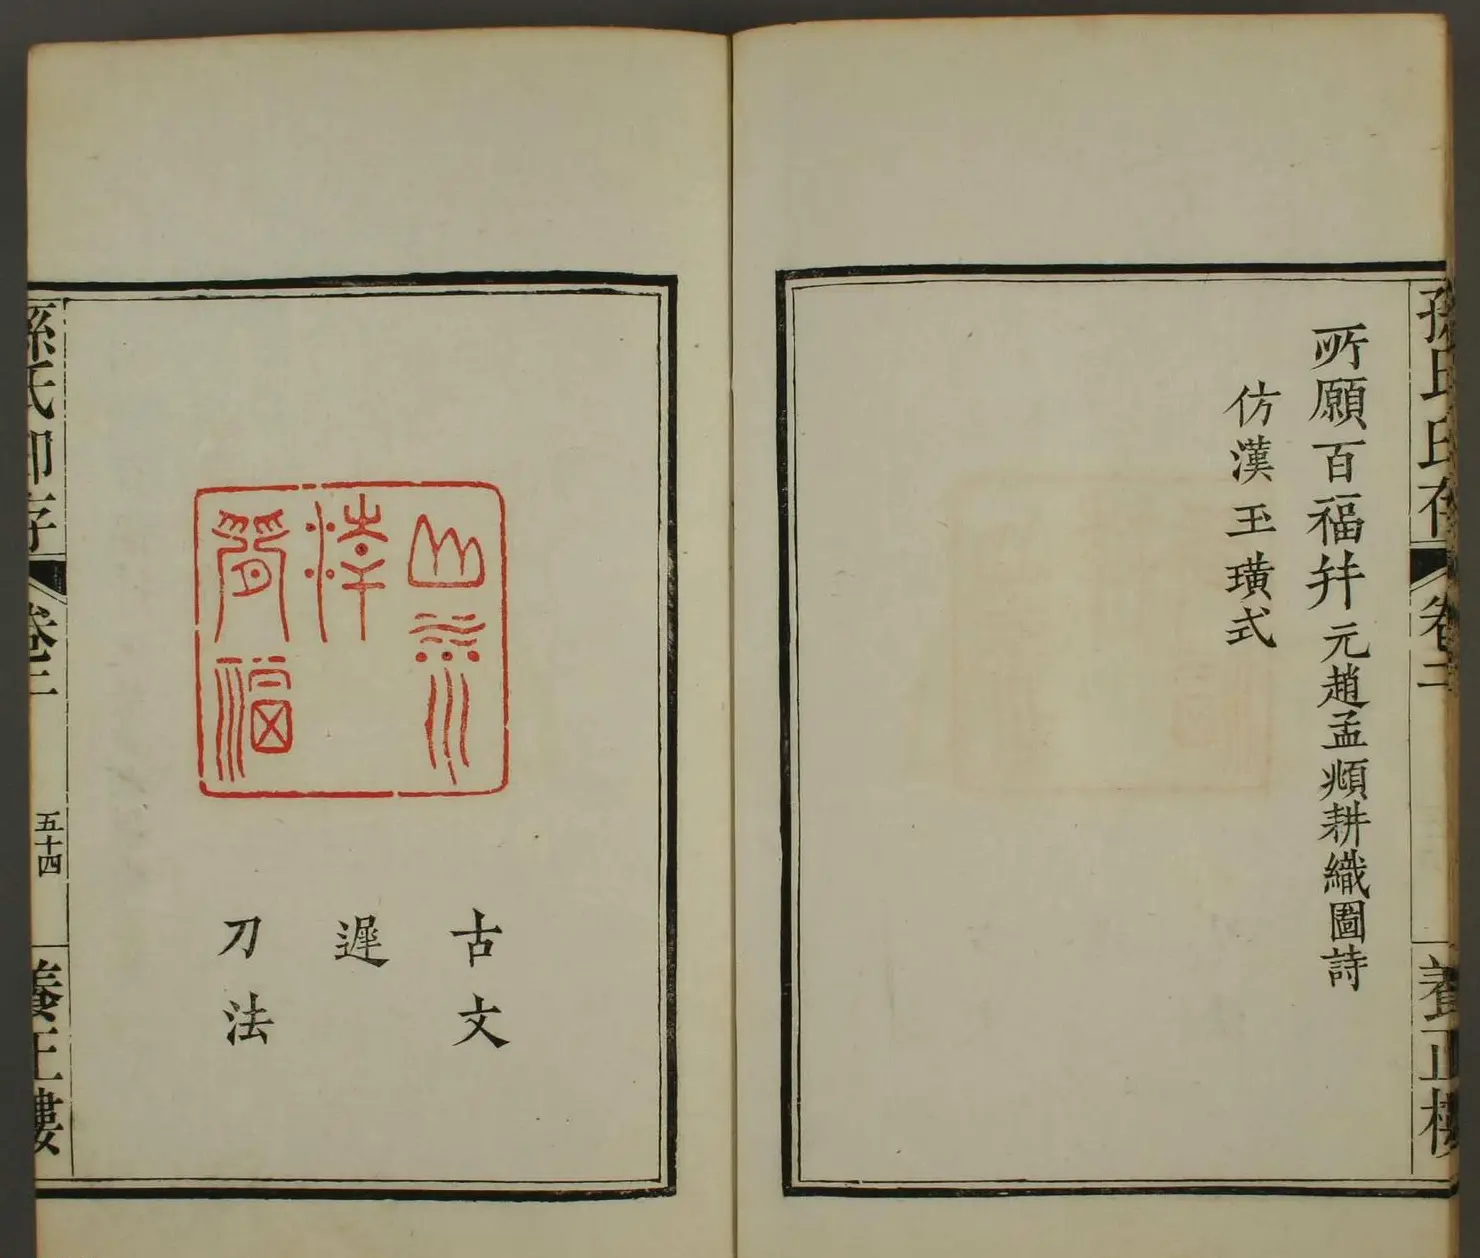 孫氏印存
卷二
養正樓
所願百福幷 元趙孟頫耕織圖詩
仿漢玉璜式
古文
遲
刀法
孫氏印存
卷二
五十四
養正樓